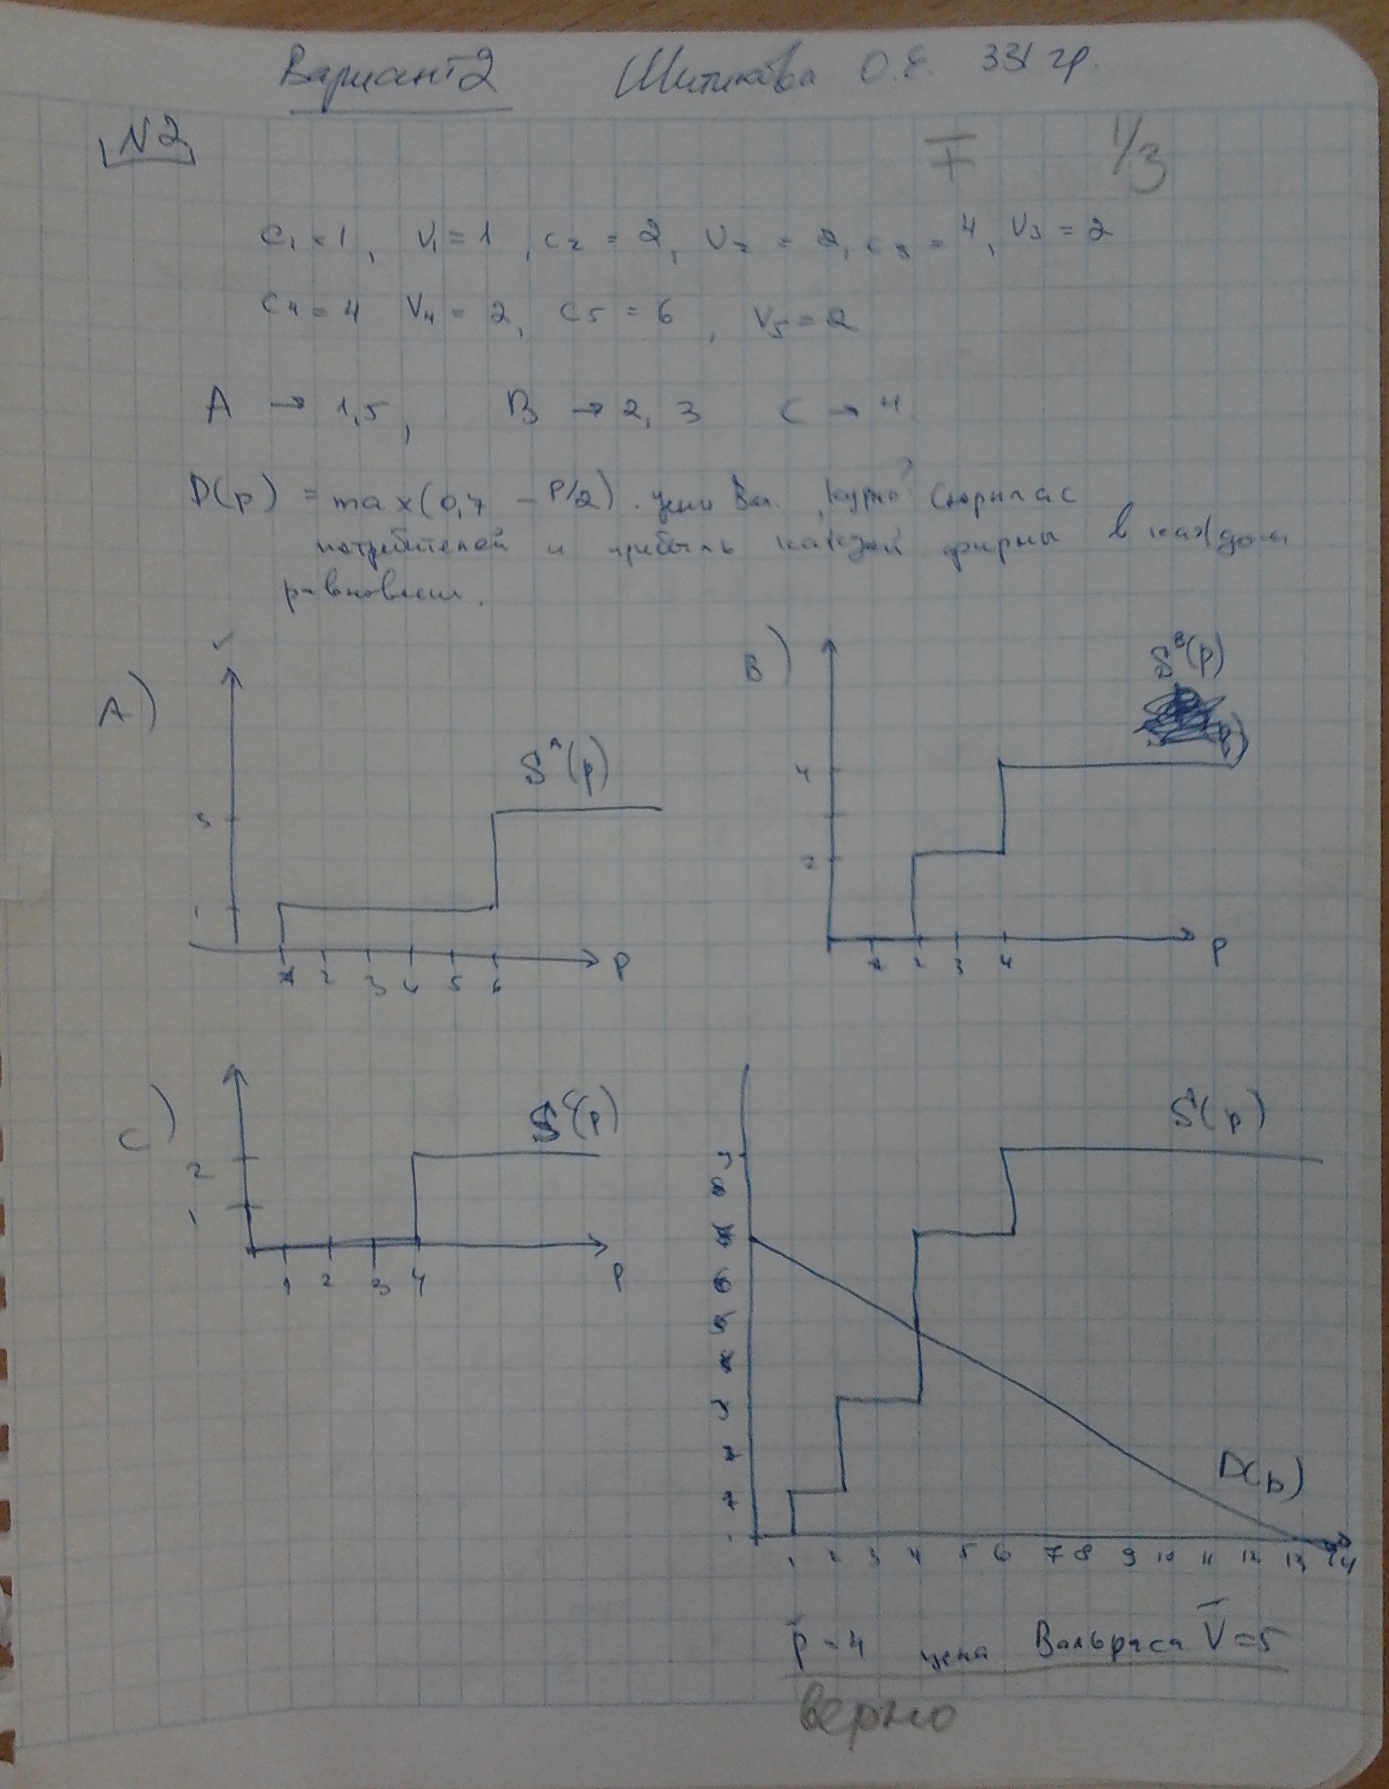 Вариант 2 Шитикова О.Е. 331 гр.
N2
∓ 1/3
c₁ = 1, V₁ = 1, c₂ = 2, V₂ = 2, c₃ = 4, V₃ = 2
c₄ = 4 V₄ = 2, c₅ = 6, V₅ = 2
A → 1,5, B → 2,3 C → 4
D(p) = max(0,7 - P/2). цены Вал. , Курно?
потребителей и прибыль каждой фирмы в каждом
равновесии.
A)
S^A(p)
3
1
1 2 3 4 5 6 p
B)
S^B(p)
4
2
1 2 3 4 p
C)
S^C(p)
2
1
1 2 3 4 p
S(p)
9
8
7
6
5
4
3
2
1
D(p)
1 2 3 4 5 6 7 8 9 10 11 12 13 14
p̃ = 4 цена Вальраса V̄ = 5
верно